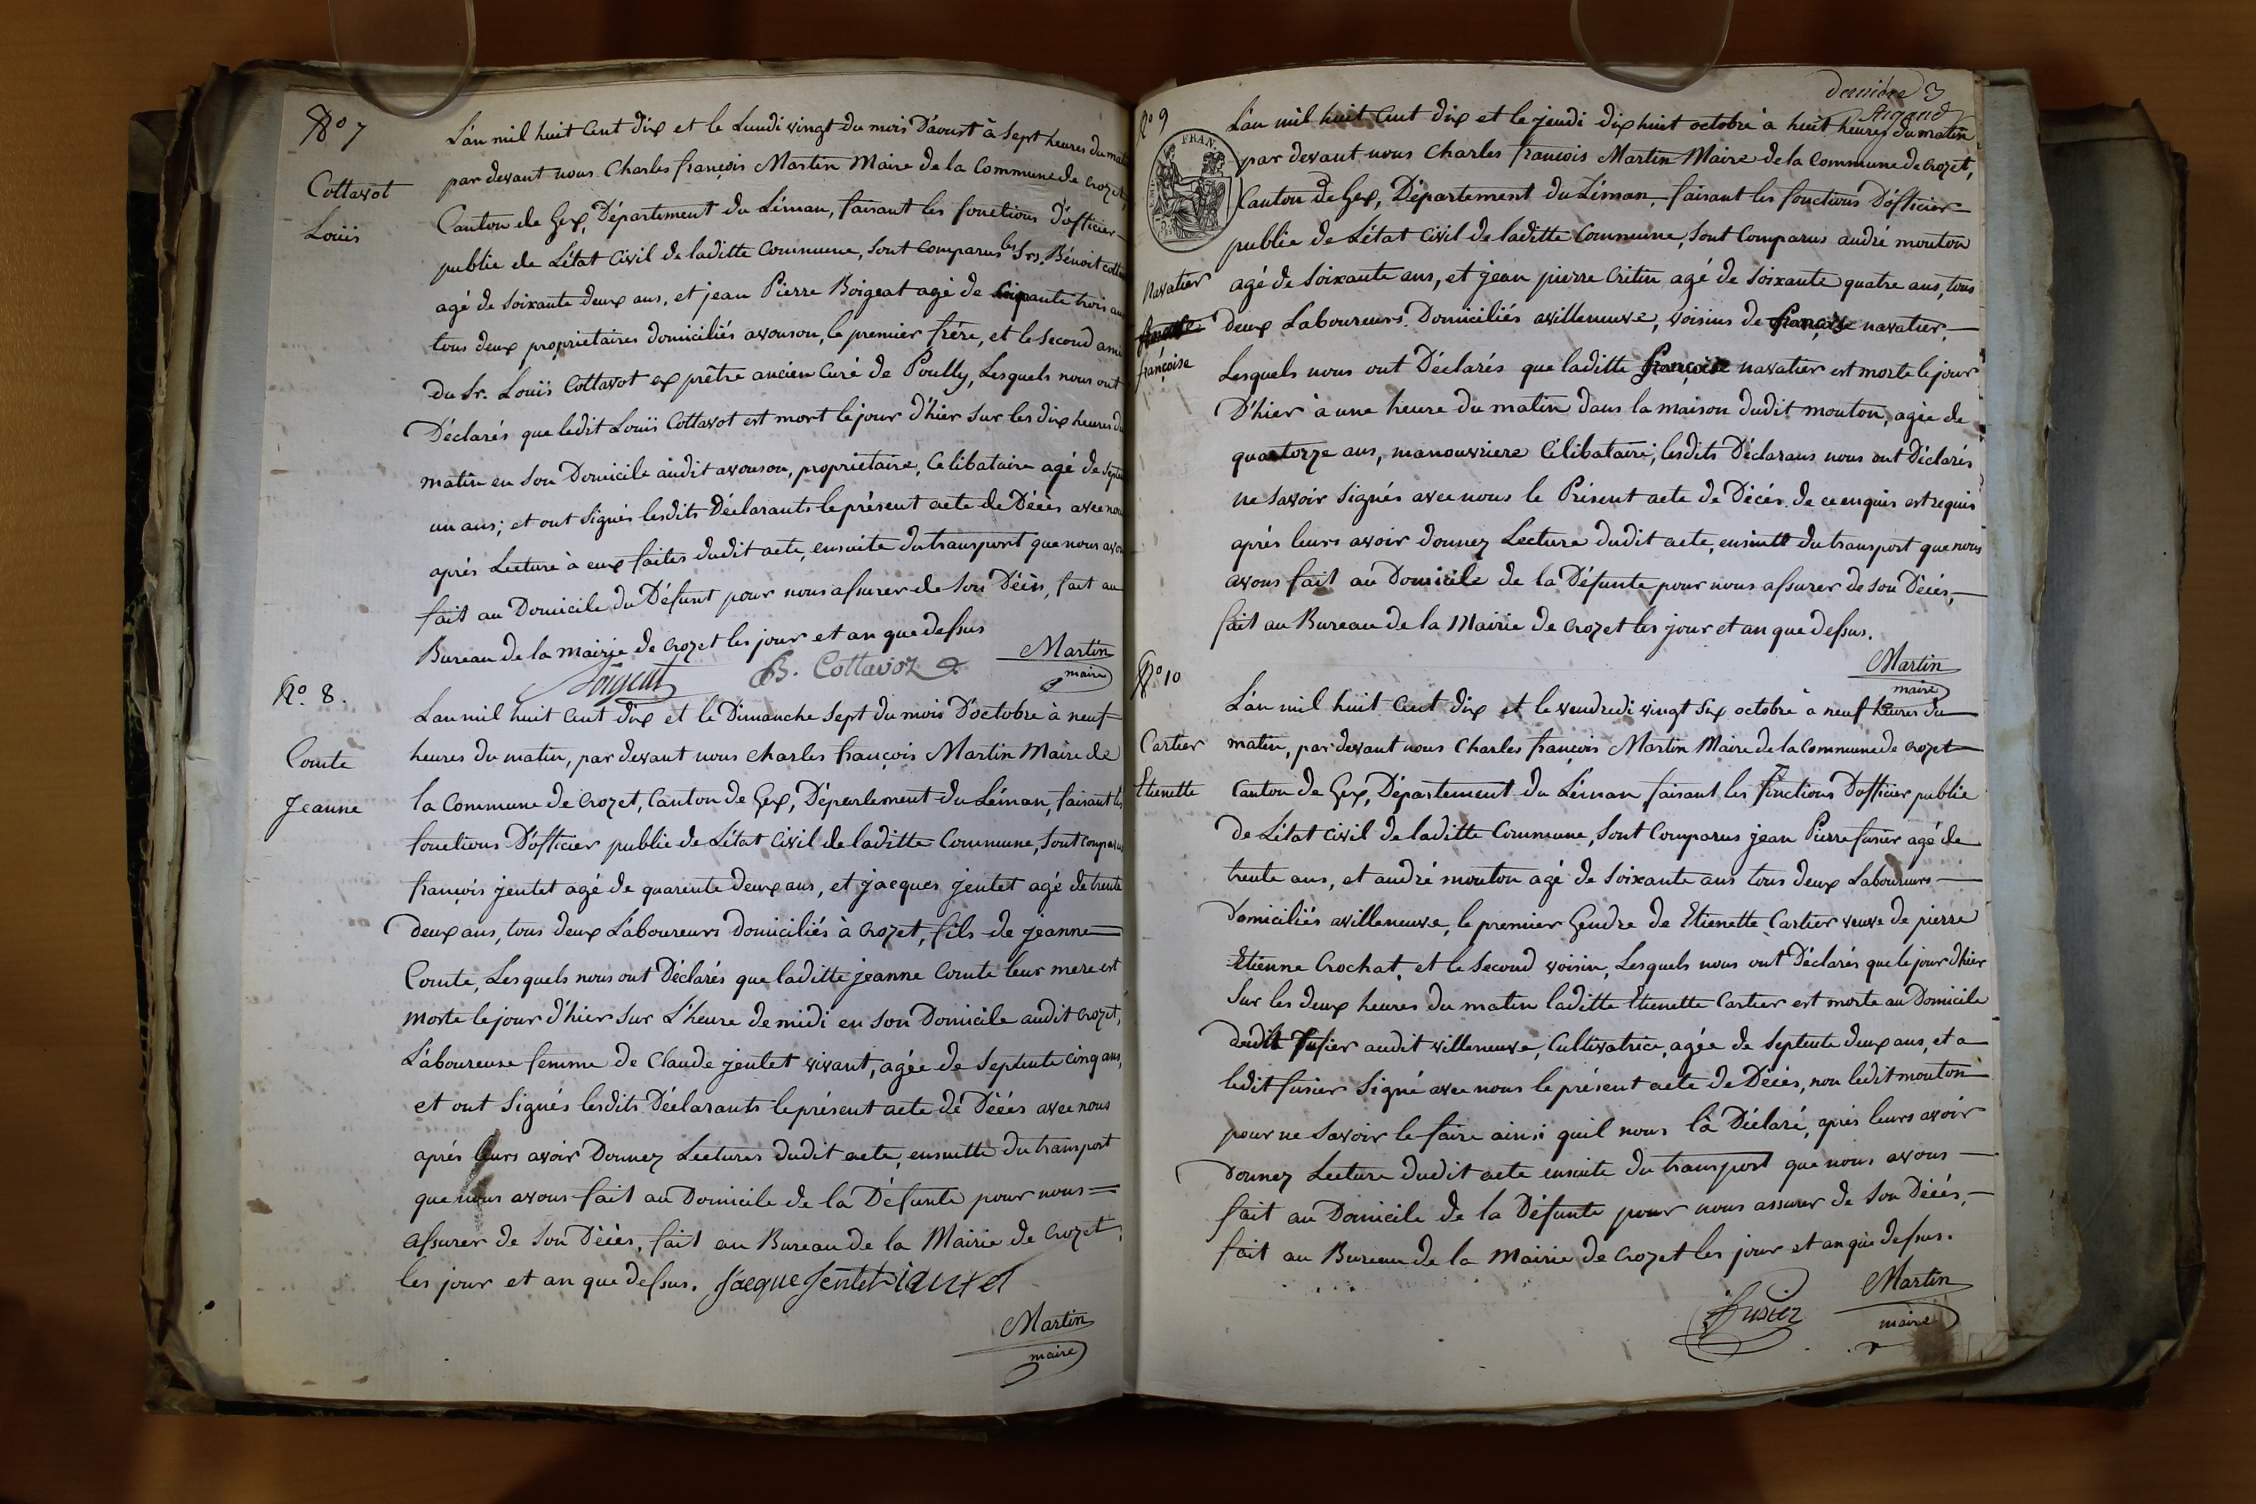 No 7
Cottavot
Louis
L'an mil huit Cent dix et le Lundi vingt du mois D'aoust à Sept heures du mat
par devant nous Charles françois Martin Maire de la Commune de Crozet,
Canton de Gex, Département du Léman, faisant les fonctions d'officier
public de L'état Civil de laditte Commune, sont comparus les Srs. Bénoit cotta
agé de soixante deux ans, et jean Pierre Boigeat agé de soixante trois ans
tous deux propriétaires domiciliés avouson, le premier frère, et le second ami
du Sr. Louis Cottavot ex prêtre ancien Curé de Poully, Lesquels nous ont
Déclarés que ledit Louis Cottavot est mort le jour d'hier sur les dix heures du
matin en son Domicile audit avouson, propriétaire, Célibataire agé de septe
un ans; et ont signés lesdits Déclarants le présent acte de Décès avec nous
après Lecture à eux faites dudit acte, ensuite du transport que nous avon
fait au Domicile du Défunt pour nous assurer de son Décès, fait au
Bureau de la mairie de Crozet les jour et an que dessus
B. Cottavoz
Martin
maire
No. 8.
Comte
Jeanne
L'an mil huit Cent dix et le Dimanche sept du mois D'octobre à neuf
heures du matin, par devant nous Charles françois Martin Maire de
la Commune de Crozet, Canton de Gex, Département du Léman, faisant les
fonctions D'officier public de L'état Civil de laditte Commune, sont comparus
françois jentet agé de quarente deux ans, et jacques jentet agé de trente
deux ans, tous deux Laboureurs domiciliés à Crozet, fils de jeanne
Comte, Lesquels nous ont Déclarés que laditte jeanne Comte leur mere est
morte le jour d'hier sur L'heure de midi en son Domicile audit Crozet,
Laboureuse femme de Claude jentet vivant, agée de septente cinq ans,
et ont signés lesdits Déclarants le présent acte de Décés avec nous
après leurs avoir Donnez Lectures dudit acte, ensuitte du transport
que nous avons fait au Domicile de la Défunte pour nous
assurer de son Décès, fait au Bureau de la Mairie de Crozet,
les jour et an que dessus. Jacque Jentet
Martin
maire
derniere 3
No 9
FRAN.
Navatier
françoise
L'an mil huit Cent dix et le jeudi dix huit octobre à huit heures du matin
par devant nous Charles françois Martin Maire de la Commune de Crozet,
Canton de Gex, Département du Léman, faisant les fonctions D'officier
public de L'état Civil de laditte Commune, sont comparus andré mouton
agé de soixante ans, et jean pierre Critin agé de soixante quatre ans, tous
deux Laboureurs Domiciliés avilleneuve, voisins de françoise navatier,
Lesquels nous ont Déclarés que laditte françoise navatier est morte le jour
D'hier à une heure du matin dans la maison dudit mouton, agée de
quatorze ans, manouvriere Célibataire, lesdits Déclarans nous ont Déclarés
ne savoir signés avec nous le Présent acte de Décès de ce enquis est requis
après leurs avoir donnez Lecture dudit acte, ensuite du transport que nous
avons fait au Domicile de la Défunte pour nous assurer de son Décès,
fait au Bureau de la Mairie de Crozet les jour et an que dessus.
Martin
maire
No 10
Cartier
Etienette
L'an mil huit Cent dix et le vendredi vingt six octobre à neuf heures du
matin, par devant nous Charles françois Martin Maire de la Commune de Crozet
Canton de Gex, Département du Léman faisant les fonctions D'officier public
de L'état Civil de laditte Commune, sont comparus jean Pierre fusier agé de
trente ans, et andré mouton agé de soixante ans tous deux Laboureurs
domiciliés avilleneuve, le premier Gendre de Etienette Cartier veuve de pierre
Etienne Crochat, et le second voisin, Lesquels nous ont Déclarés que le jour d'hier
sur les deux heures du matin laditte Etienette Cartier est morte au Domicile
dudit fusier audit villeneuve, Cultivatrice, agée de septente deux ans, et a
ledit fusier signé avec nous le présent acte de Décès, non ledit mouton
pour ne savoir le faire ainsi quil nous la Déclaré, après leurs avoir
donnez Lecture dudit acte ensuite du transport que nous avons
fait au Domicile de la Défunte pour nous assurer de son Décès,
fait au Bureau de la Mairie de Crozet les jour et an que dessus.
fusier
Martin
maire